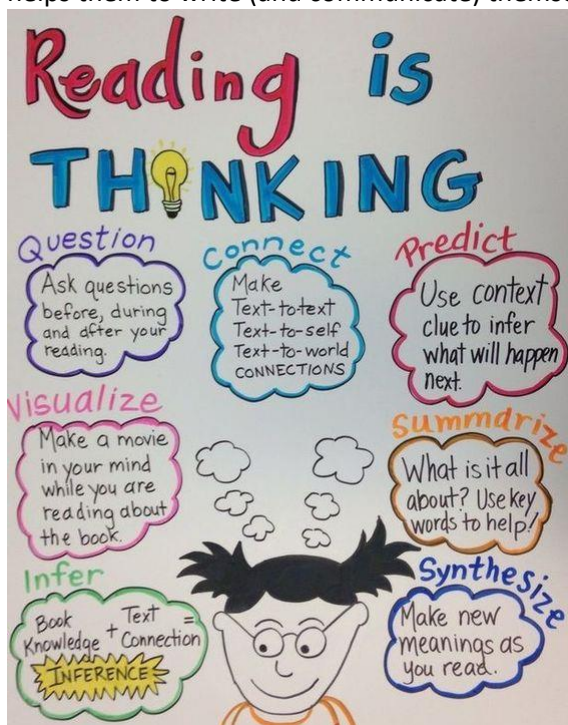 helps them to write (and communicate) themse
Reading is
THINKING
Question
Ask questions
before, during
and after your
reading.
Connect
Make
Text-to-text
Text-to-self
Text-to-world
CONNECTIONS
Predict
Use context
clue to infer
what will happen
next.
Visualize
Make a movie
in your mind
while you are
reading about
the book.
Summarize
What is it all
about? Use key
words to help!
Infer
Book Text =
Knowledge + Connection
INFERENCE
Synthesize
Make new
meanings as
you read.